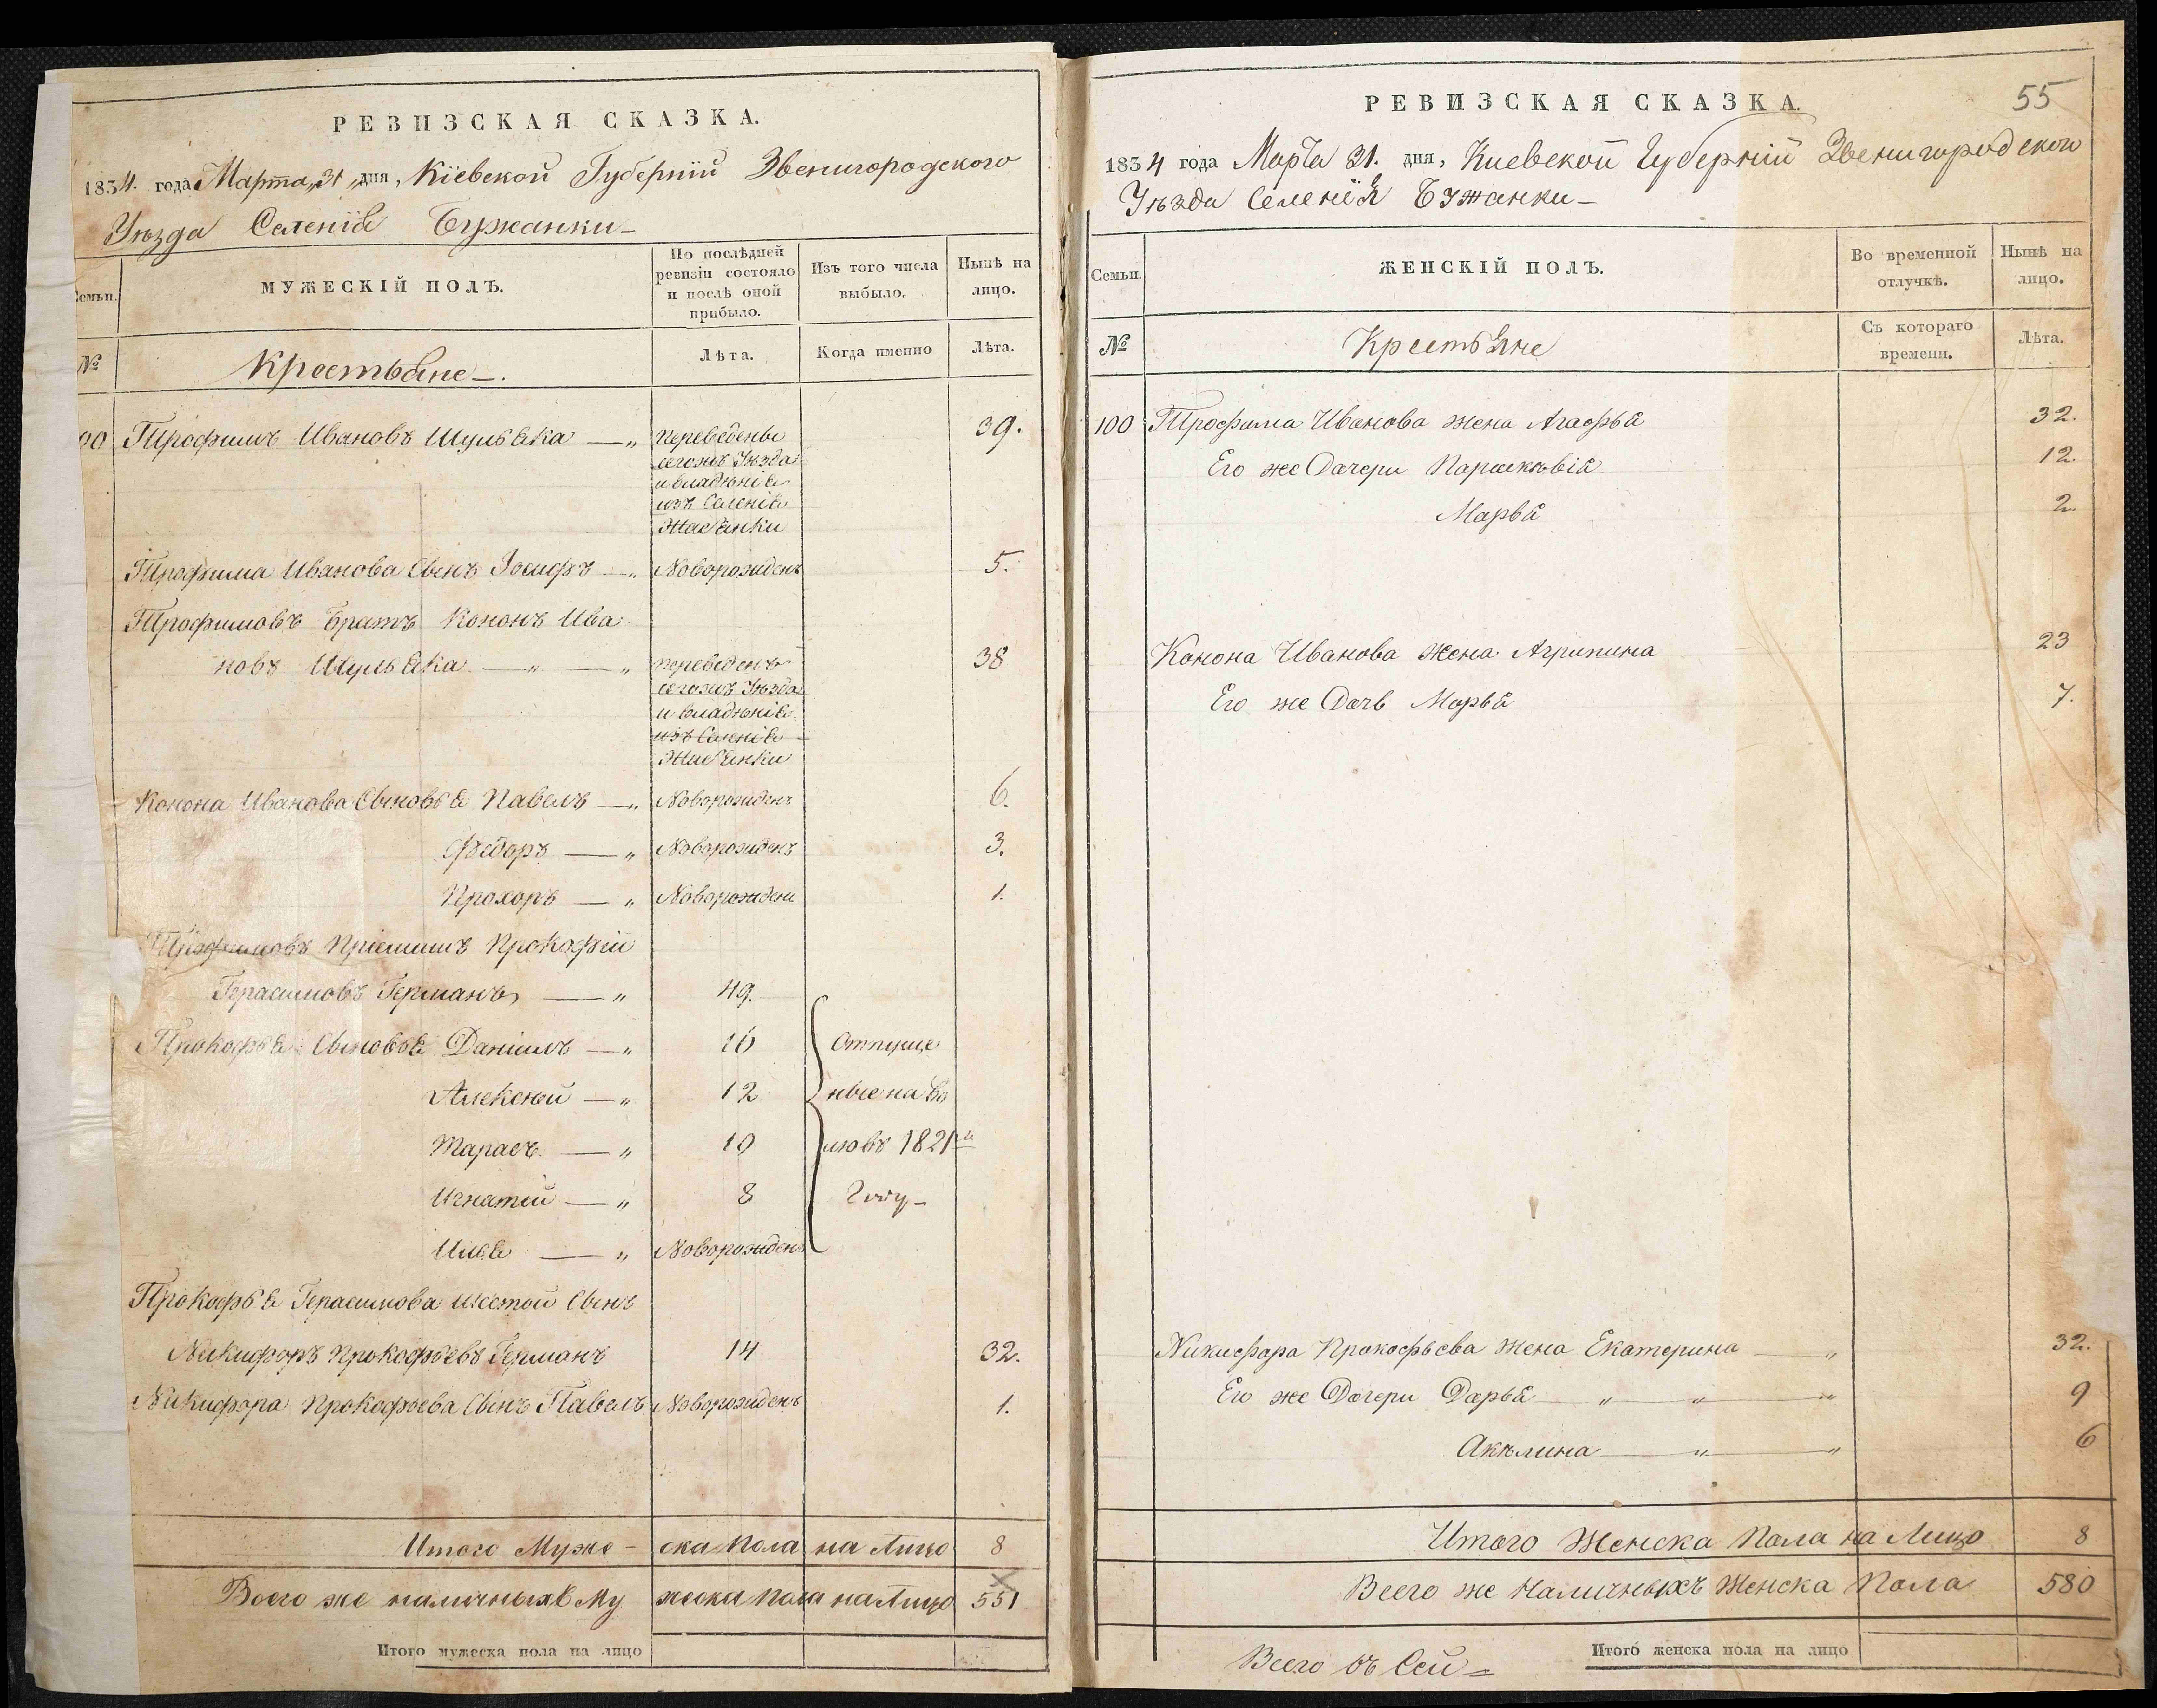 РЕВИЗСКАЯ СКАЗКА.
1834. года Марта „31 „дня, Кіевской Губерніи Звенигородского
Уѣзда Селенія Бужанки
Семьи.
МУЖЕСКІЙ ПОЛЪ.
По послѣдней ревизіи состояло и послѣ оной прибыло.
Изъ того числа выбыло.
Нынѣ на лицо.
№
Крестьяне
Лѣта.
Когда именно
Лѣта.
00 Трофимъ Ивановъ Шуляка — „ переведены 39.
сегожъ Уѣзда
и владѣнія
изъ Селенія
Трофима Иванова Сынъ Іосифъ — „ Новорожденъ 5.
Трофимовъ Братъ Кононъ Ива
новъ Шуляка — „ — „ переведенъ 38
сегожъ Уѣзда
и владѣнія
изъ Селенія
Конона Иванова Сыновья Павелъ — „ Новорожденъ 6.
Федоръ — „ Новорожденъ 3.
Прохоръ — „ Новорожден 1.
Трофимовъ Пріемышъ Прокофій
Герасимовъ Германъ, — „ 49.
Прокофья Сыновья Даніилъ — „ 16 Отпуще
Алексѣй — „ 12 ные на во
Тарасъ — „ 10 лю въ 1821мъ
Игнатій — „ 8 Году
Илья — „ Новорожденъ
Прокофья Герасимова шестой Сынъ
Никифоръ Прокофьевъ Германъ 14 32.
Никифора Прокофьева Сынъ Павелъ Новорожденъ 1.
Итого Муже - ска Пола на Лицо 8
Всего же наличныхъ Му жеска Пола на Лицо 551
Итого мужеска пола на лицо
55
РЕВИЗСКАЯ СКАЗКА.
1834 года Марта 31. дня, Киевской Губерніи Звенигородского
Уѣзда Селенія Бужанки
Семьи.
ЖЕНСКІЙ ПОЛЪ.
Во временной отлучкѣ.
Нынѣ на лицо.
№
Крестьяне
Съ котораго времени.
Лѣта.
100 Трофима Иванова жена Агафья 32.
Его же Дочери Парасковія 12.
Марья 2.
Конона Иванова жена Агрипина 23
Его же Дочь Марья 7.
Никифора Прокофьева жена Екатерина — „ 32.
Его же Дочери Дарья „ — „ — „ 9
Акѣлина — „ — „ 6
Итого Женска Пола на Лицо 8
Всего же Наличныхъ Женска Пола 580
Итого женска пола на лицо
Всего въ Сей